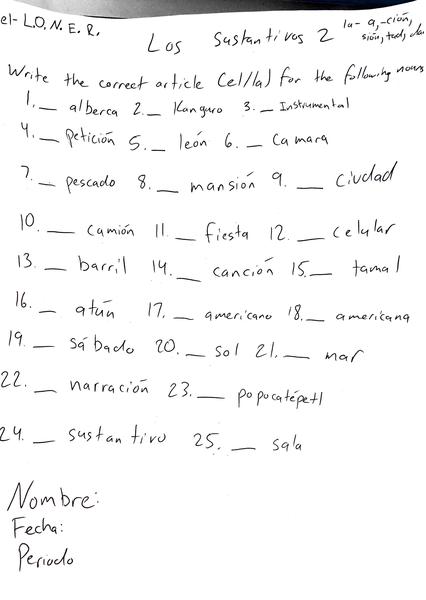 el- L.O.N.E.R.
la- a, -ción,
sión, tad,
Los Sustantivos 2
Write the correct article (el/la) for the following nouns
1. __ alberca 2. __ Kanguro 3. __ Instrumental
4. __ petición 5. __ león 6. __ Camara
7. __ pescado 8. __ mansión 9. __ Ciudad
10. __ camión 11. __ fiesta 12. __ celular
13. __ barril 14. __ canción 15. __ tamal
16. __ atún 17. __ americano 18. __ americana
19. __ sábado 20. __ sol 21. __ mar
22. __ narración 23. __ popocatépetl
24. __ sustantivo 25. __ sala
Nombre:
Fecha:
Periodo